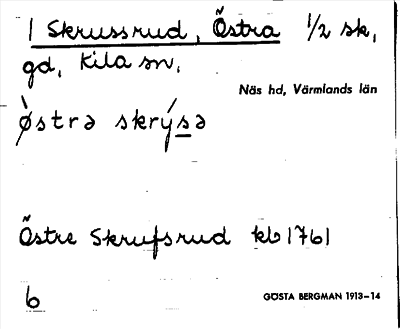 1 Skrussrud, Östra 1/2 sk,
gd, Kila sn,
Näs hd, Värmlands län
ø̀strə skrýsə
Östre Skrufsrud kb 1761
6
GÖSTA BERGMAN 1913–14